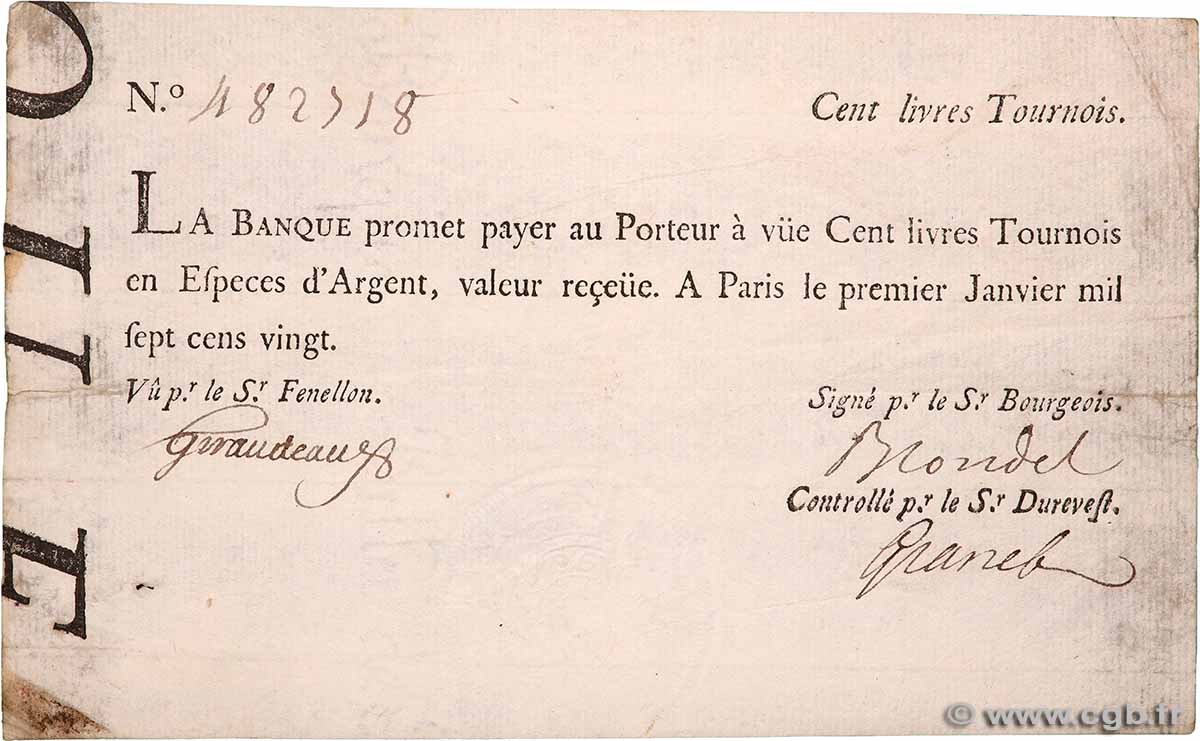 N.º 482718
Cent livres Tournois.
LA BANQUE promet payer au Porteur à vüe Cent livres Tournois
en Eſpeces d'Argent, valeur reçeüe. A Paris le premier Janvier mil
ſept cens vingt.
Vû p.r le S.r Fenellon.
Giraudeau
Signé p.r le S.r Bourgeois.
Blondel
Controllé p.r le S.r Dureveſt.
Granet
© www.cgb.fr